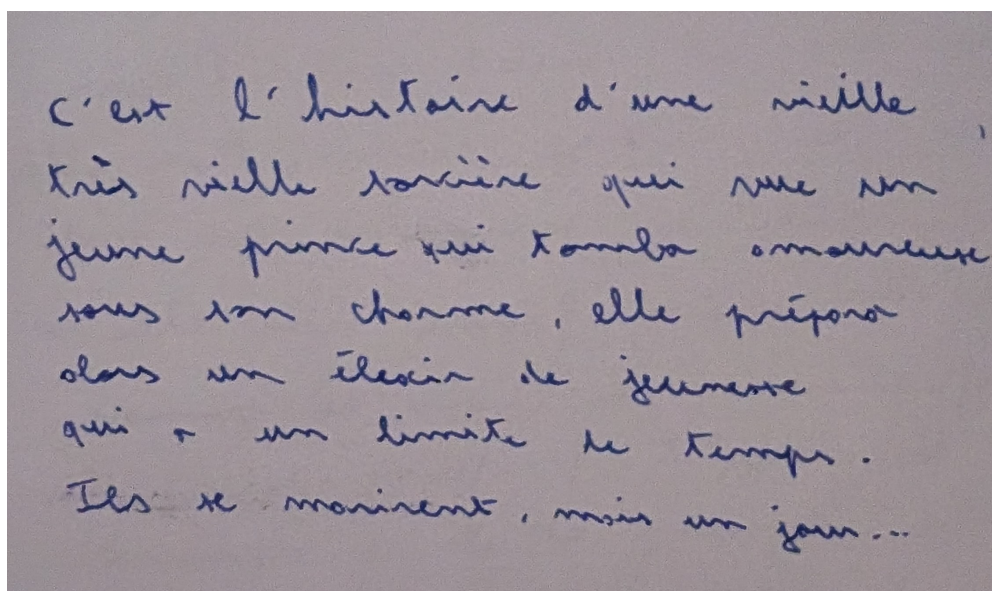 C'est l'histoire d'une vieille,
très vielle sorcière qui vue un
jeune prince qui tomba amoureuse
sous son charme, elle prépara
alors un élexir de jeunesse
qui a un limite de temps.
Ils se marirent, mais un jour...